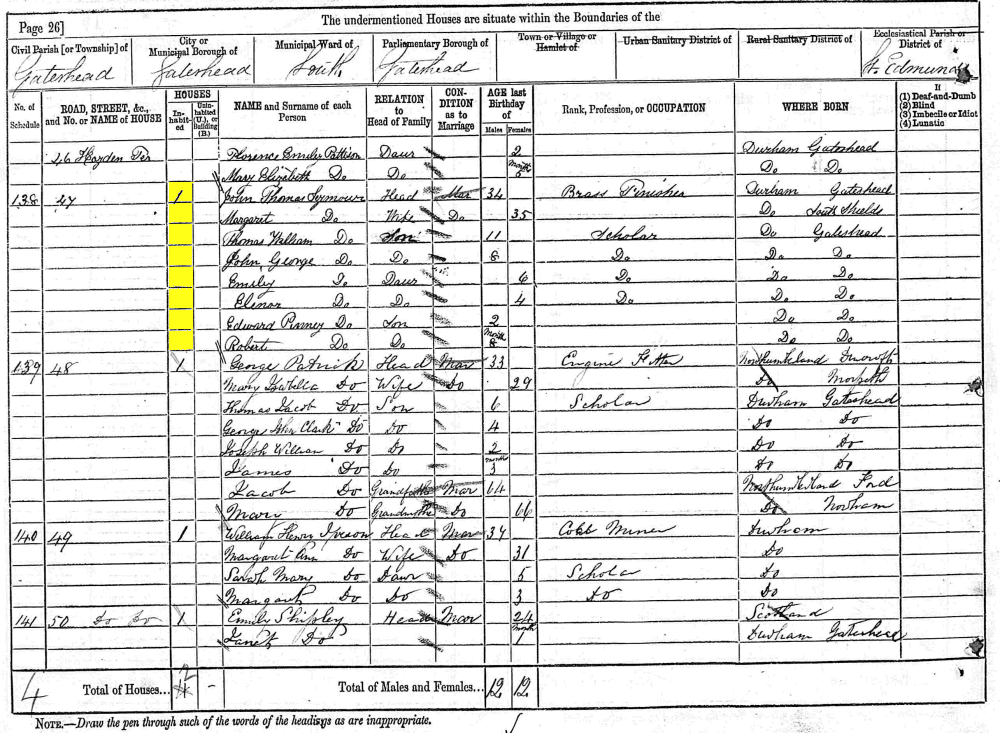 Page 26]
The undermentioned Houses are situate within the Boundaries of the
Civil Parish [or Township] of
City or Municipal Borough of
Municipal Ward of
Parliamentary Borough of
Town or Village or Hamlet of
Urban Sanitary District of
Rural Sanitary District of
Ecclesiastical Parish or District of
Gateshead Gateshead South Gateshead St. Edmunds
No. of Schedule
ROAD, STREET, &c., and No. or NAME of HOUSE
HOUSES
Inhabited
Uninhabited (U.), or Building (B.)
NAME and Surname of each Person
RELATION to Head of Family
CONDITION as to Marriage
AGE last Birthday of
Males Females
Rank, Profession, or OCCUPATION
WHERE BORN
If
(1) Deaf-and-Dumb
(2) Blind
(3) Imbecile or Idiot
(4) Lunatic
46 Hayden Ter Florence Emily Pattison Daur 2 Durham Gateshead
Mary Elizabeth Do Do Months 5 Do Do
138 47 1 John Thomas Seymour Head Mar 34 Brass Finisher Durham Gateshead
Margaret Do Wife Do 35 Do South Shields
Thomas William Do Son 11 Scholar Do Gateshead
John George Do Do 8 Do Do Do
Emily Do Daur 6 Do Do Do
Elenor Do Do 4 Do Do Do
Edward Pinney Do Son 2 Do Do
Robert Do Do Months 8 Do Do
139 48 1 George Patrick Head Mar 33 Engine Fitter Northumberland
Mary Isabella Do Wife Do 29 Do Morpeth
Thomas Jacob Do Son 6 Scholar Durham Gateshead
George John Clark Do Do 4 Do Do
Joseph William Do Do 2 Do Do
James Do Do Months 3 Do Do
Jacob Do Grandfather Mar 64 Northumberland Ford
Mary Do Grandmother Do 66 Do Norham
140 49 1 William Henry Head Mar 37 Coal Miner Durham
Margaret Ann Do Wife Do 31 Do
Sarah Mary Do Daur 5 Scholar Do
Margaret Do Do 3 Do Do
141 50 Do Do 1 Emily Shipley Head Mar 24 Scotland
Janet Do Month 1 Durham Gateshead
4 Total of Houses... 4 2 - Total of Males and Females... 12 12
NOTE.—Draw the pen through such of the words of the headings as are inappropriate.